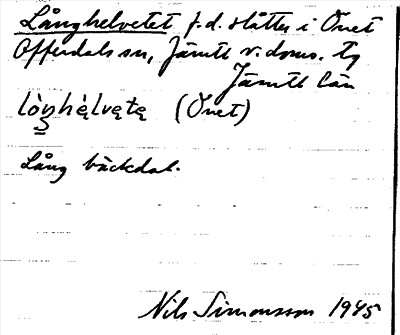 Långhelvetet f.d. slåtter i Önet
Offerdals sn, Jämtl v. doms. tg
Jämtl län
lòŋhę̀lvętę (Önet)
Lång bäckdal.
Nils Simonsson 1945